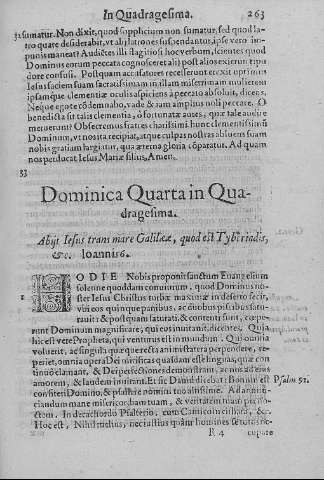 In Quadragesima. 263
sumatur. Non dixit, quod supplicium non sumatur, sed quod la-
tro quare desiderabit, vt ab latrones suspendantur, ipse vero im-
punis maneat? Audiétes illi flagitiosi hoc verbum, scientes quod
Dominus eorum peccata cognosceret alij post alios exierunt tipa
dore confusi. Postquam accusatores recesserunt erexit optimus
Iesus faciem suam sacratissimam in illam miserrimam mulierem
ipsamque clementiæ oculis aspiciens à peccatis absoluit, dicens.
Neque ego te códemnabo, vade & iam amplius noli peccare. O
benedicta sit talis clementia, ô fortunatæ aures, quæ tale audire
meruerunt! Obsecremus fratres charissimi hunc clementissimū
Dominum, vt nos ita recipiat, atque culpas nostras abluens suam
nobis gratiam largiatur, qua æterna gloria cóparatur. Ad quam
nos perducat Iesus Mariæ filius, Amen.
53
Dominica Quarta in Qua-
dragesima.
Abijt Iesus trans mare Galilææ, quod est Tyberiadis,
&c. Ioannis 6.
HODIE Nobis proponit sanctum Euangelium
solemne quoddam conuiuium, quod Dominus no-
ster Iesus Christus turbæ maximæ in deserto fecit,
vbi eos quinque panibus, ac duobus piscibus satu-
rauit: & postquam saturati, & contenti sunt, cœpe-
runt Dominum magnificare, qui eos inuitauit, dicentes. Quia
hic est vere Propheta, qui venturus est in mundum. Qui omnia
voluerit, ac singula quæque rectè animi statera perpendere, re-
periet, omnia opera Dei mirificas quasdam esse linguas, quæ con
tinuò clamant, & Dei perfectiones demonstrant, ac nos ad eius
amorem, & laudem inuitant. Et sic Dauid dicebat: Bonum est Psalm 91.
confiteri Domino, & psallere nomini tuo altissime. Ad annun-
ciandum mane misericordiam tuam, & veritatem tuam per no-
ctem. In decachordo Psalterio, cum Cantico in cithara, &c.
Hoc est, Nihil melius, nec iustius quàm homines se totos ric-
R 4 cupare